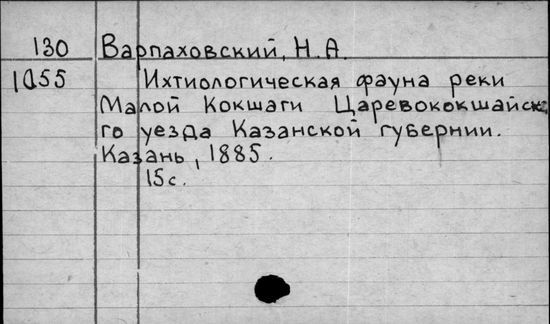 130 Варпаховский, Н.А.
1055 Ихтиологическая фауна реки
Малой Кокшаги Царевококшайск-
го уезда Казанской губернии.
Казань, 1885.
15с.